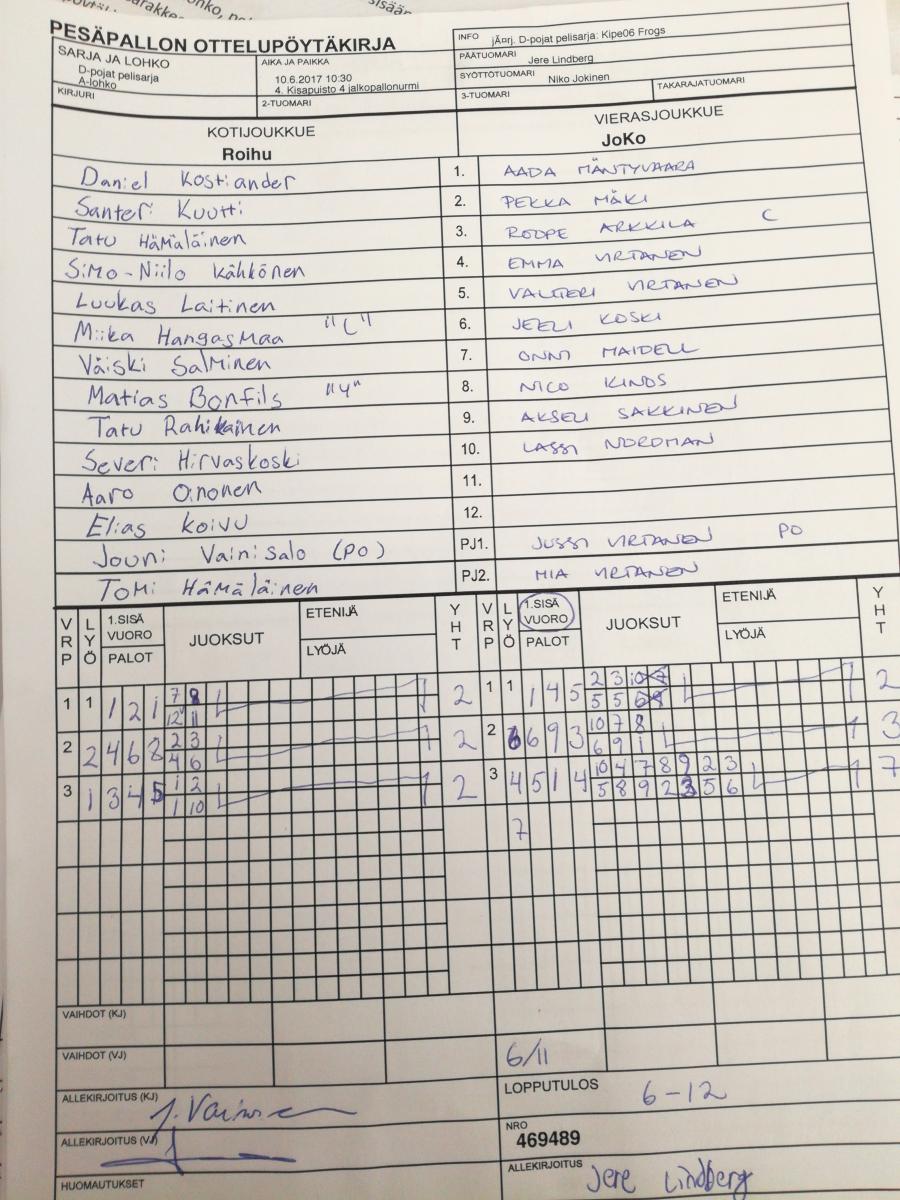 PESÄPALLON OTTELUPÖYTÄKIRJA
INFO jÃ¤rj. D-pojat pelisarja: Kipe06 Frogs
SARJA JA LOHKO
D-pojat pelisarja
A-lohko
AIKA JA PAIKKA
10.6.2017 10:30
4. Kisapuisto 4 jalkopallonurmi
PÄÄTUOMARI Jere Lindberg
SYÖTTÖTUOMARI Niko Jokinen
KIRJURI
2-TUOMARI
3-TUOMARI
TAKARAJATUOMARI
KOTIJOUKKUE
Roihu
VIERASJOUKKUE
JoKo
Daniel Kostiander 1. AADA MÄNTYVAARA
Santeri Kuutti 2. PEKKA MÄKI
Tatu Hämäläinen 3. ROOPE ARKKILA C
Simo-Niilo Kähkönen 4. EMMA VIRTANEN
Luukas Laitinen 5. VALTTERI VIRTANEN
Miika Hangasmaa "C" 6. JEELI KOSKI
Väiski Salminen 7. ONNI MAIDELL
Matias Bonfils "4" 8. NICO KINOS
Tatu Rahikainen 9. AKSELI SAKKINEN
Severi Hirvaskoski 10. LASSI NORDMAN
Aaro Oinonen 11.
Elias Koivu 12.
Jouni Vainisalo (PO) PJ1. JUSSI VIRTANEN PO
Tomi Hämäläinen PJ2. MIA VIRTANEN
VRP LYÖ 1.SISÄ VUORO PALOT JUOKSUT ETENIJÄ LYÖJÄ YHT VRP LYÖ 1.SISÄ VUORO PALOT JUOKSUT ETENIJÄ LYÖJÄ YHT
1 1 1 2 1 7 8 2 1 1 1 4 5 2 3 10 7 2
12 11 5 5 6 8
2 2 4 6 8 2 3 2 2 6 6 9 3 10 7 8 3
4 6 6 9 1
3 1 3 4 5 1 2 2 3 4 5 1 4 10 4 7 8 9 2 3 7
1 10 5 8 9 2 3 5 6
7
VAIHDOT (KJ)
VAIHDOT (VJ) 6/11
ALLEKIRJOITUS (KJ)
LOPPUTULOS 6-12
ALLEKIRJOITUS (VJ)
NRO
469489
HUOMAUTUKSET
ALLEKIRJOITUS Jere Lindberg